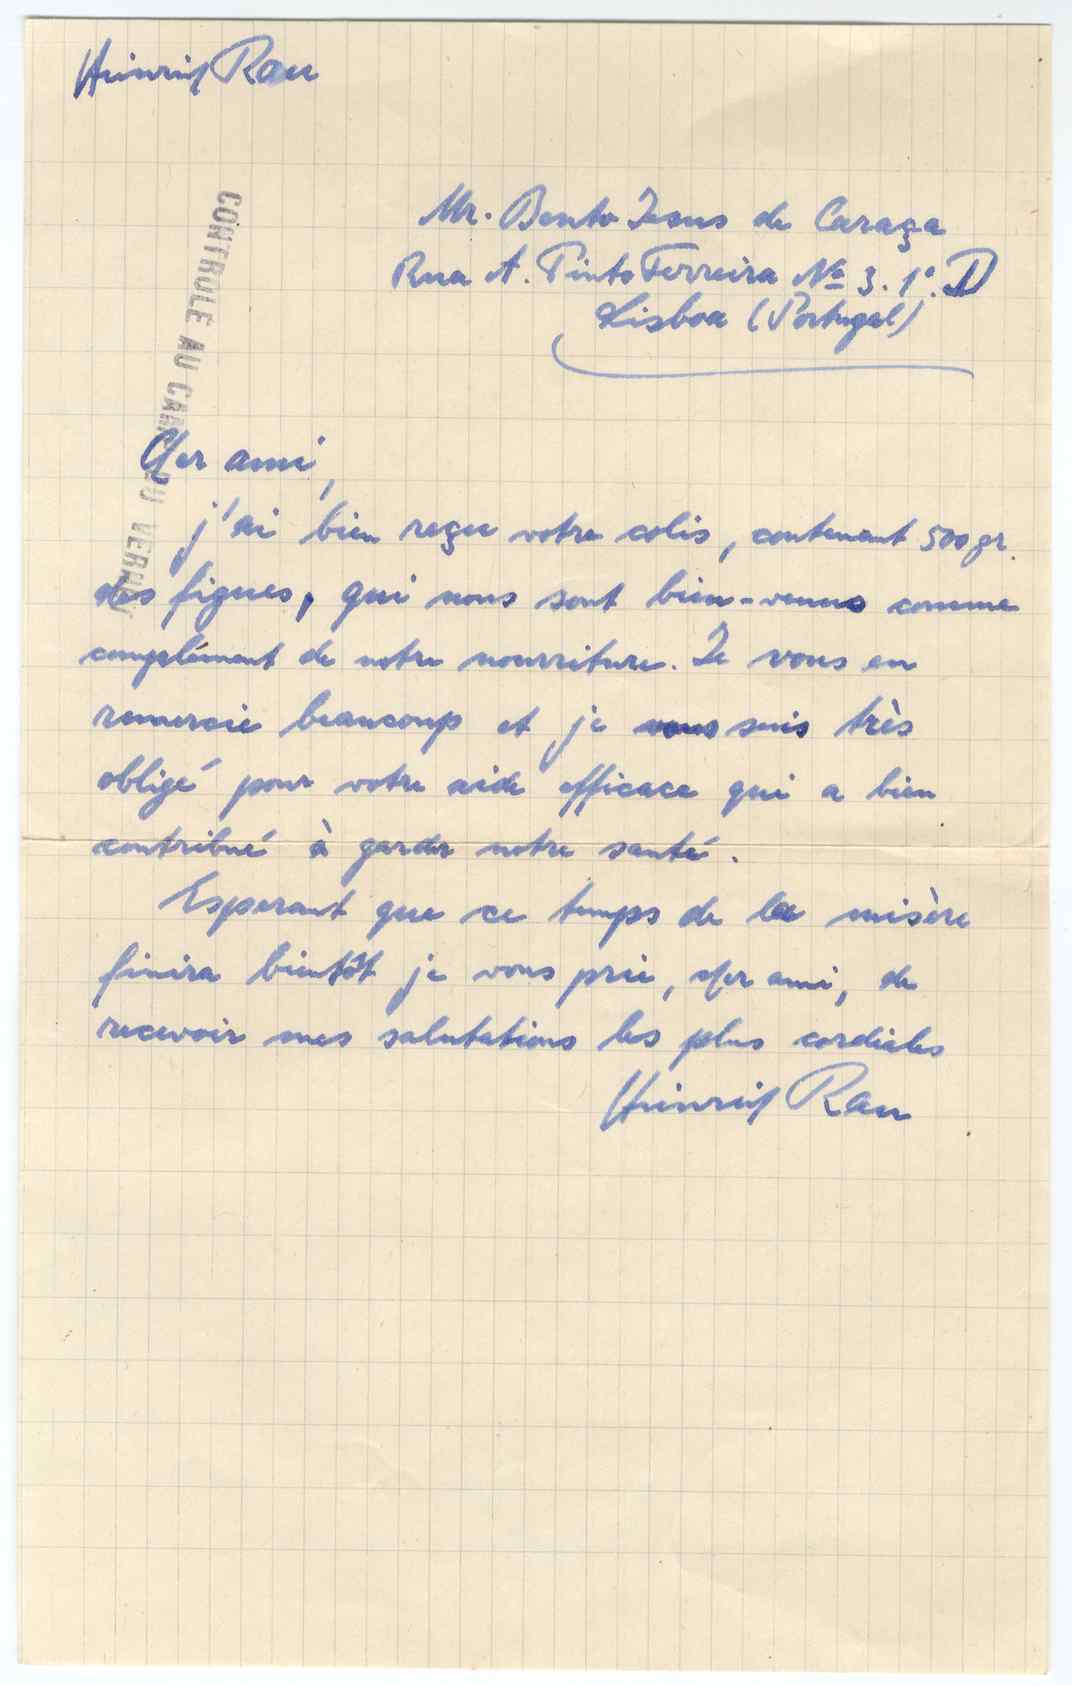 Heinrich Rau
Mr. Bento Jesus de Caraça
Rua A. Pinto Ferreira No 3. 1°. D
Lisboa (Portugal)
CONTROLÉ AU CAMP DU VERNET
Cher ami,
j'ai bien reçu votre colis, contenant 500 gr.
des figues, qui nous sont bien-venus comme
complément de notre nourriture. Je vous en
remercie beaucoup et je suis très
obligé pour votre aide efficace qui a bien
contribué à garder notre santé.
Esperant que ce temps de la misère
finira bientôt je vous prie, cher ami, de
recevoir mes salutations les plus cordiales
Heinrich Rau